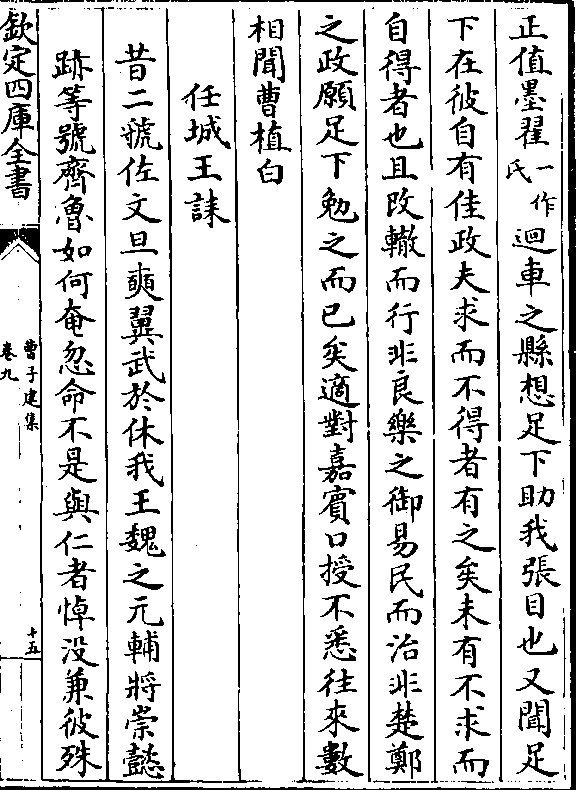 正值墨翟一作氏迴車之縣想足下助我張目也又聞足
下在彼自有佳政夫求而不得者有之矣未有不求而
自得者也且改轍而行非良樂之御易民而治非楚鄭
之政願足下勉之而已矣適對嘉賓口授不悉往來數
相聞曹植白
任城王誄
昔二虢佐文旦奭翼武於休我王魏之元輔將崇懿
跡等號齊魯如何奄忽命不是與仁者悼没兼彼殊
欽定四庫全書
曹子建集
卷九
十五